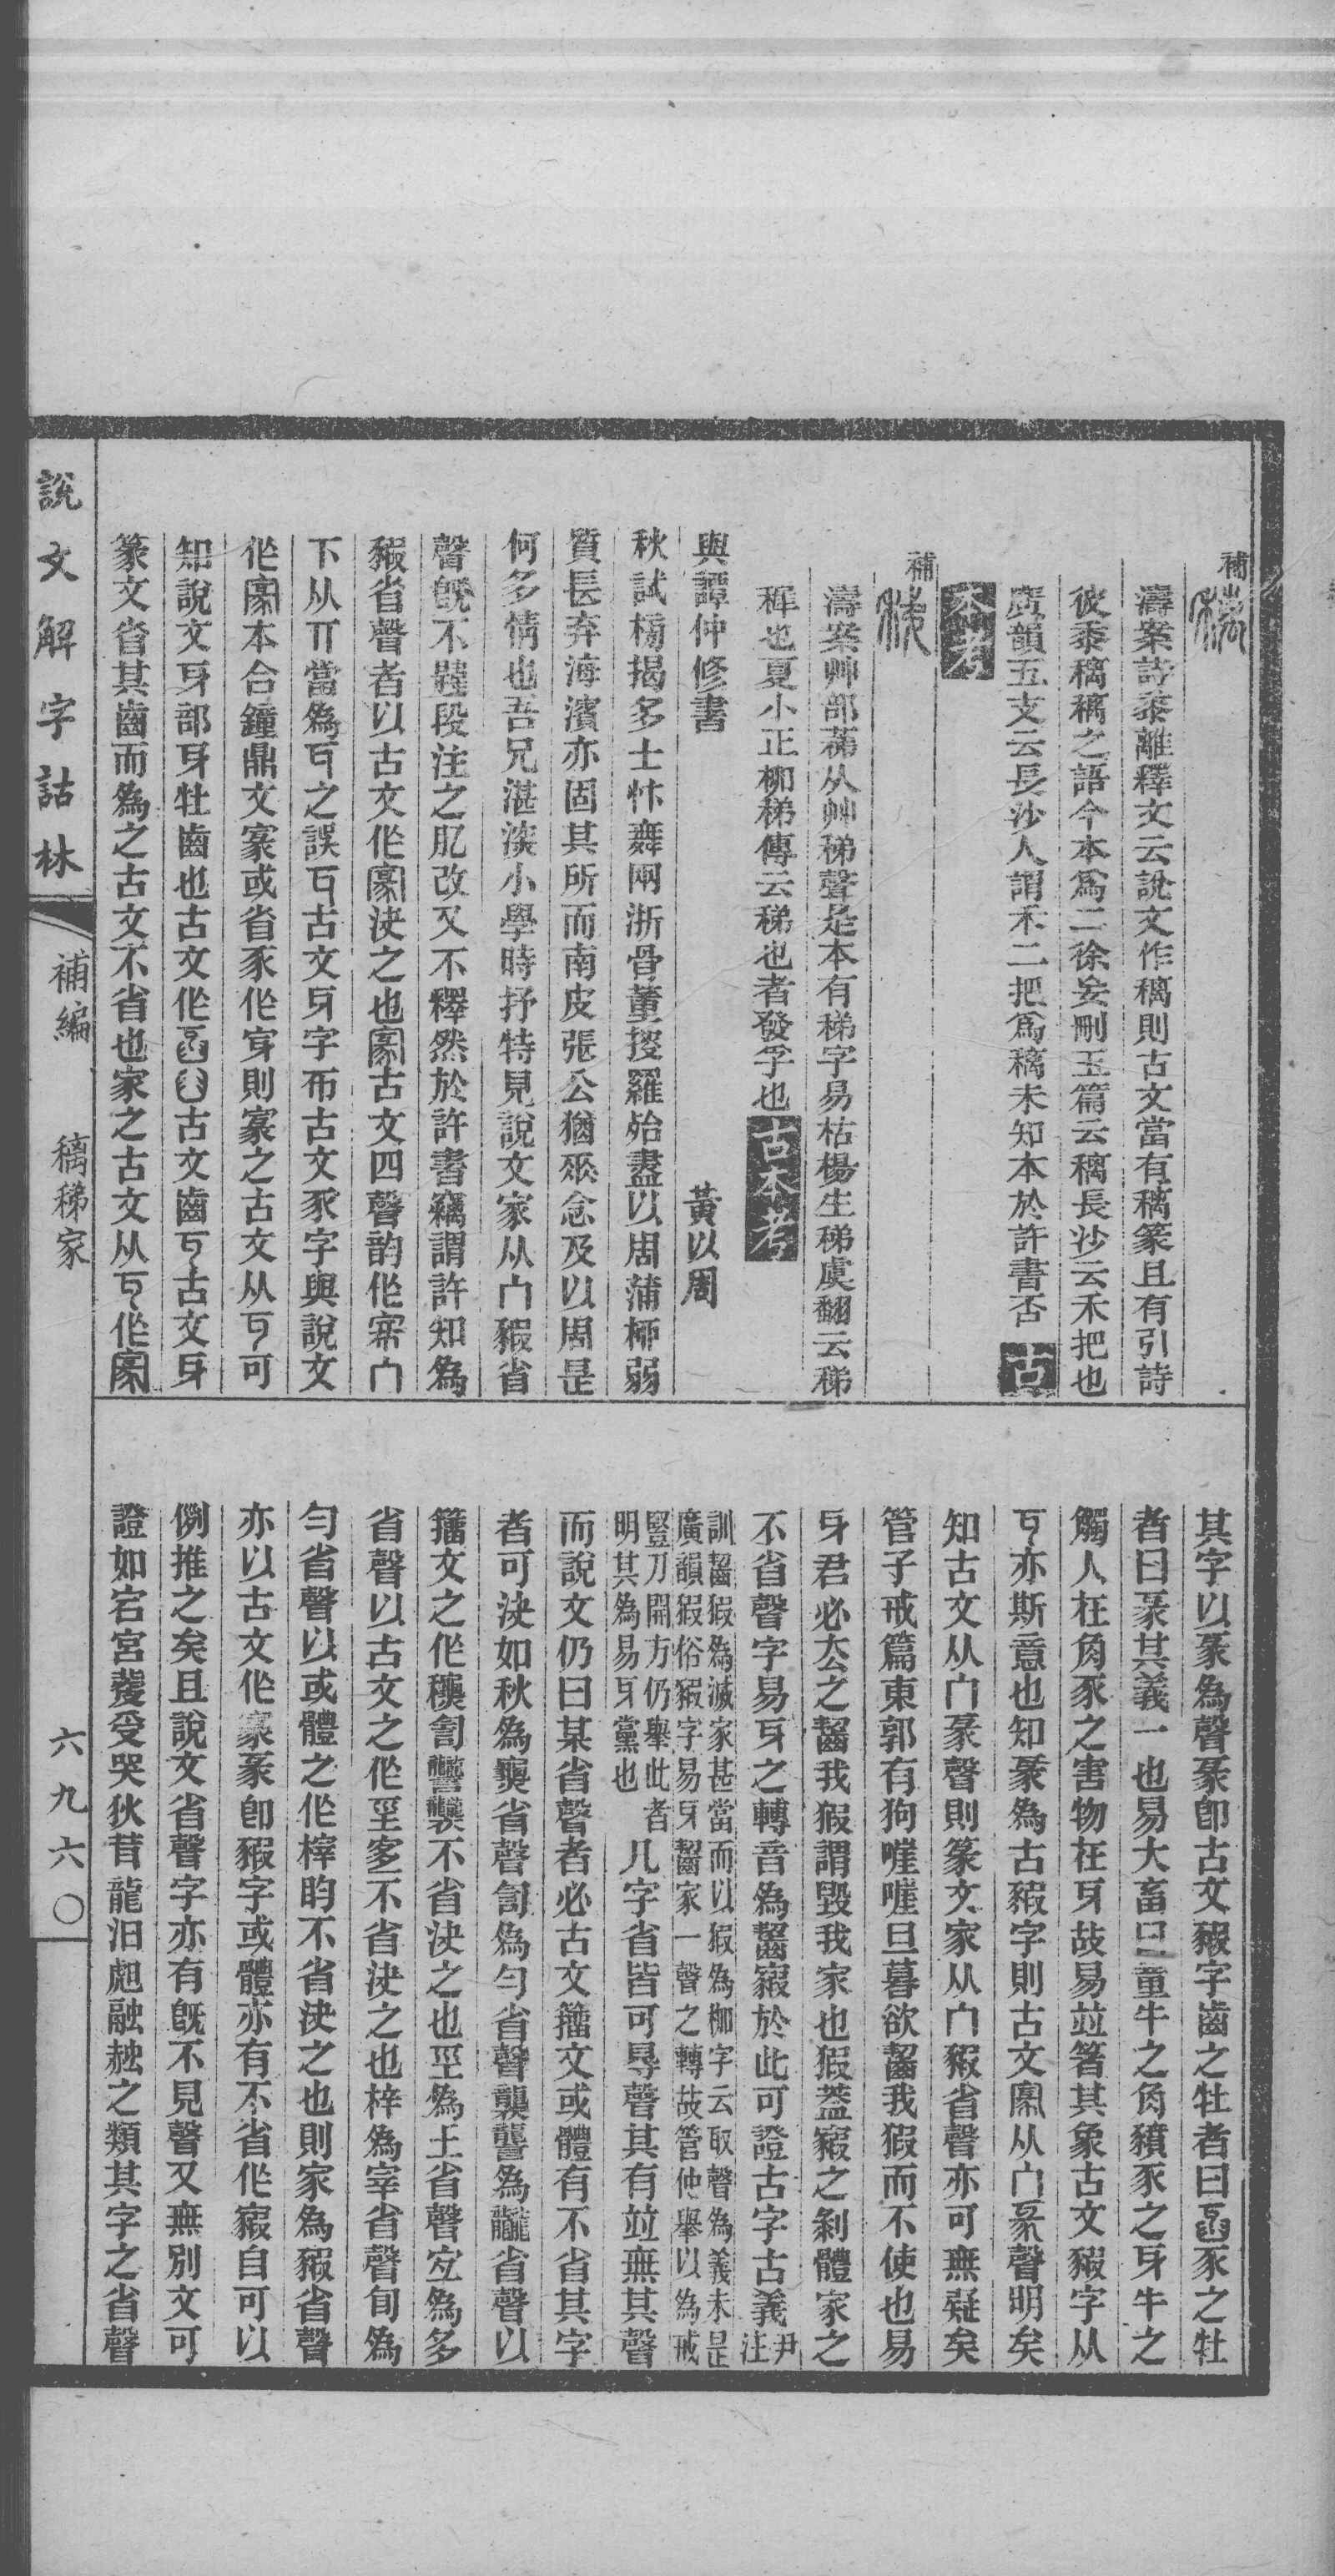 補
濤案詩黍離釋文云說文作穲則古文當有穲篆且有引詩
彼黍穲穲之語今本爲二徐妄刪玉篇云穲長沙云禾把也
廣韻五支云長沙人謂禾二把爲穲未知本於許書否 古
本考
補
濤案艸部蕛从艸稊聲是本有稊字易枯楊生稊虞翻云稊
稺也夏小正柳稊傳云稊也者發孚也 古本考
與譚仲修書 黃以周
秋試榜揭多士忭舞兩浙骨董搜羅殆盡以周蒲柳弱
質長弃海濱亦固其所而南皮張公猶眾念及以周是
何多情也吾兄湛深小學時抒特見說文家从宀豭省
聲旣不韙段注之肊改又不釋然於許書竊謂許知爲
豭省聲者以古文作 決之也 古文四聲韵作 宀
下从丌當爲 之誤 古文牙字 古文豕字與說文
作 本合鐘鼎文家或省豕作 則家之古文从 可
知說文牙部牙牡齒也古文作 古文齒 古文牙
篆文省其齒而爲之古文不省也家之古文从 作
其字以 爲聲 卽古文豭字齒之牡者曰 豕之牡
者曰 其義一也易大畜曰童牛之角豶豕之牙牛之
觸人在角豕之害物在牙故易竝箸其象古文豭字从
亦斯意也知 爲古豭字則古文 从宀 聲明矣
知古文从宀 聲則篆文家从宀豭省聲亦可無疑矣
管子戒篇東郭有狗嘊嘊旦暮欲齧我猳而不使也易
牙君必去之齧我猳謂毀我家也猳葢 之剩體家之
不省聲字易牙之轉音爲齧 於此可證古字古義 尹注
訓齧猳爲滅家甚當而以猳爲枷字云取聲爲義未是
廣韻猳俗豭字易牙齧家一聲之轉故管仲舉以為戒
豎刀開方仍舉此者
明其為易牙黨也 凡字省皆可尋聲其有竝無其聲
而說文仍曰某省聲者必古文籒文或體有不省其字
者可決如秋爲 省聲訇爲勻省聲襲讋爲龖省聲以
籒文之作 不省決之也巠爲壬省聲宐爲多
省聲以古文之作 不省決之也梓爲宰省聲旬爲
勻省聲以或體之作榟 不省決之也則家爲豭省聲
亦以古文作 卽豭字或體亦有不省作 自可以
例推之矣且說文省聲字亦有旣不見聲又無別文可
證如宕宮 受哭狄 龍汨 融 之類其字之省聲
說文解字詁林
補編 穲稊家
六九六〇